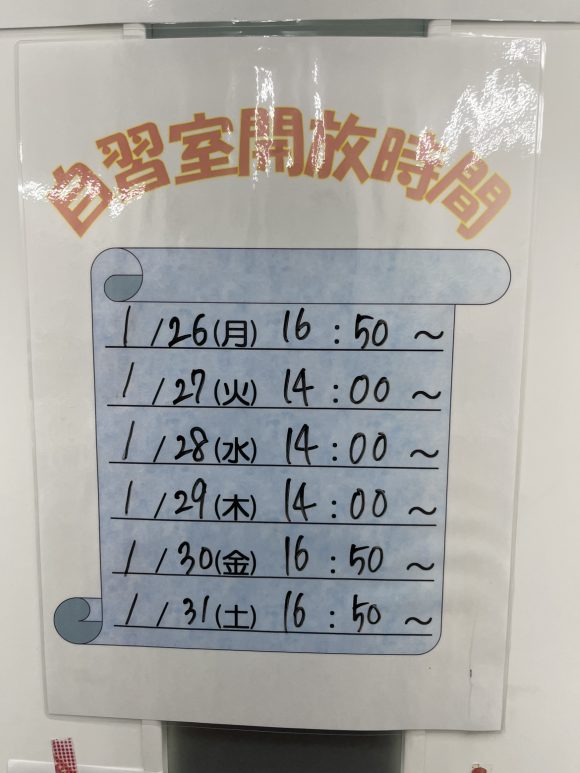 自習室開放時間
1/26(月) 16:50~
1/27(火) 14:00~
1/28(水) 14:00~
1/29(木) 14:00~
1/30(金) 16:50~
1/31(土) 16:50~